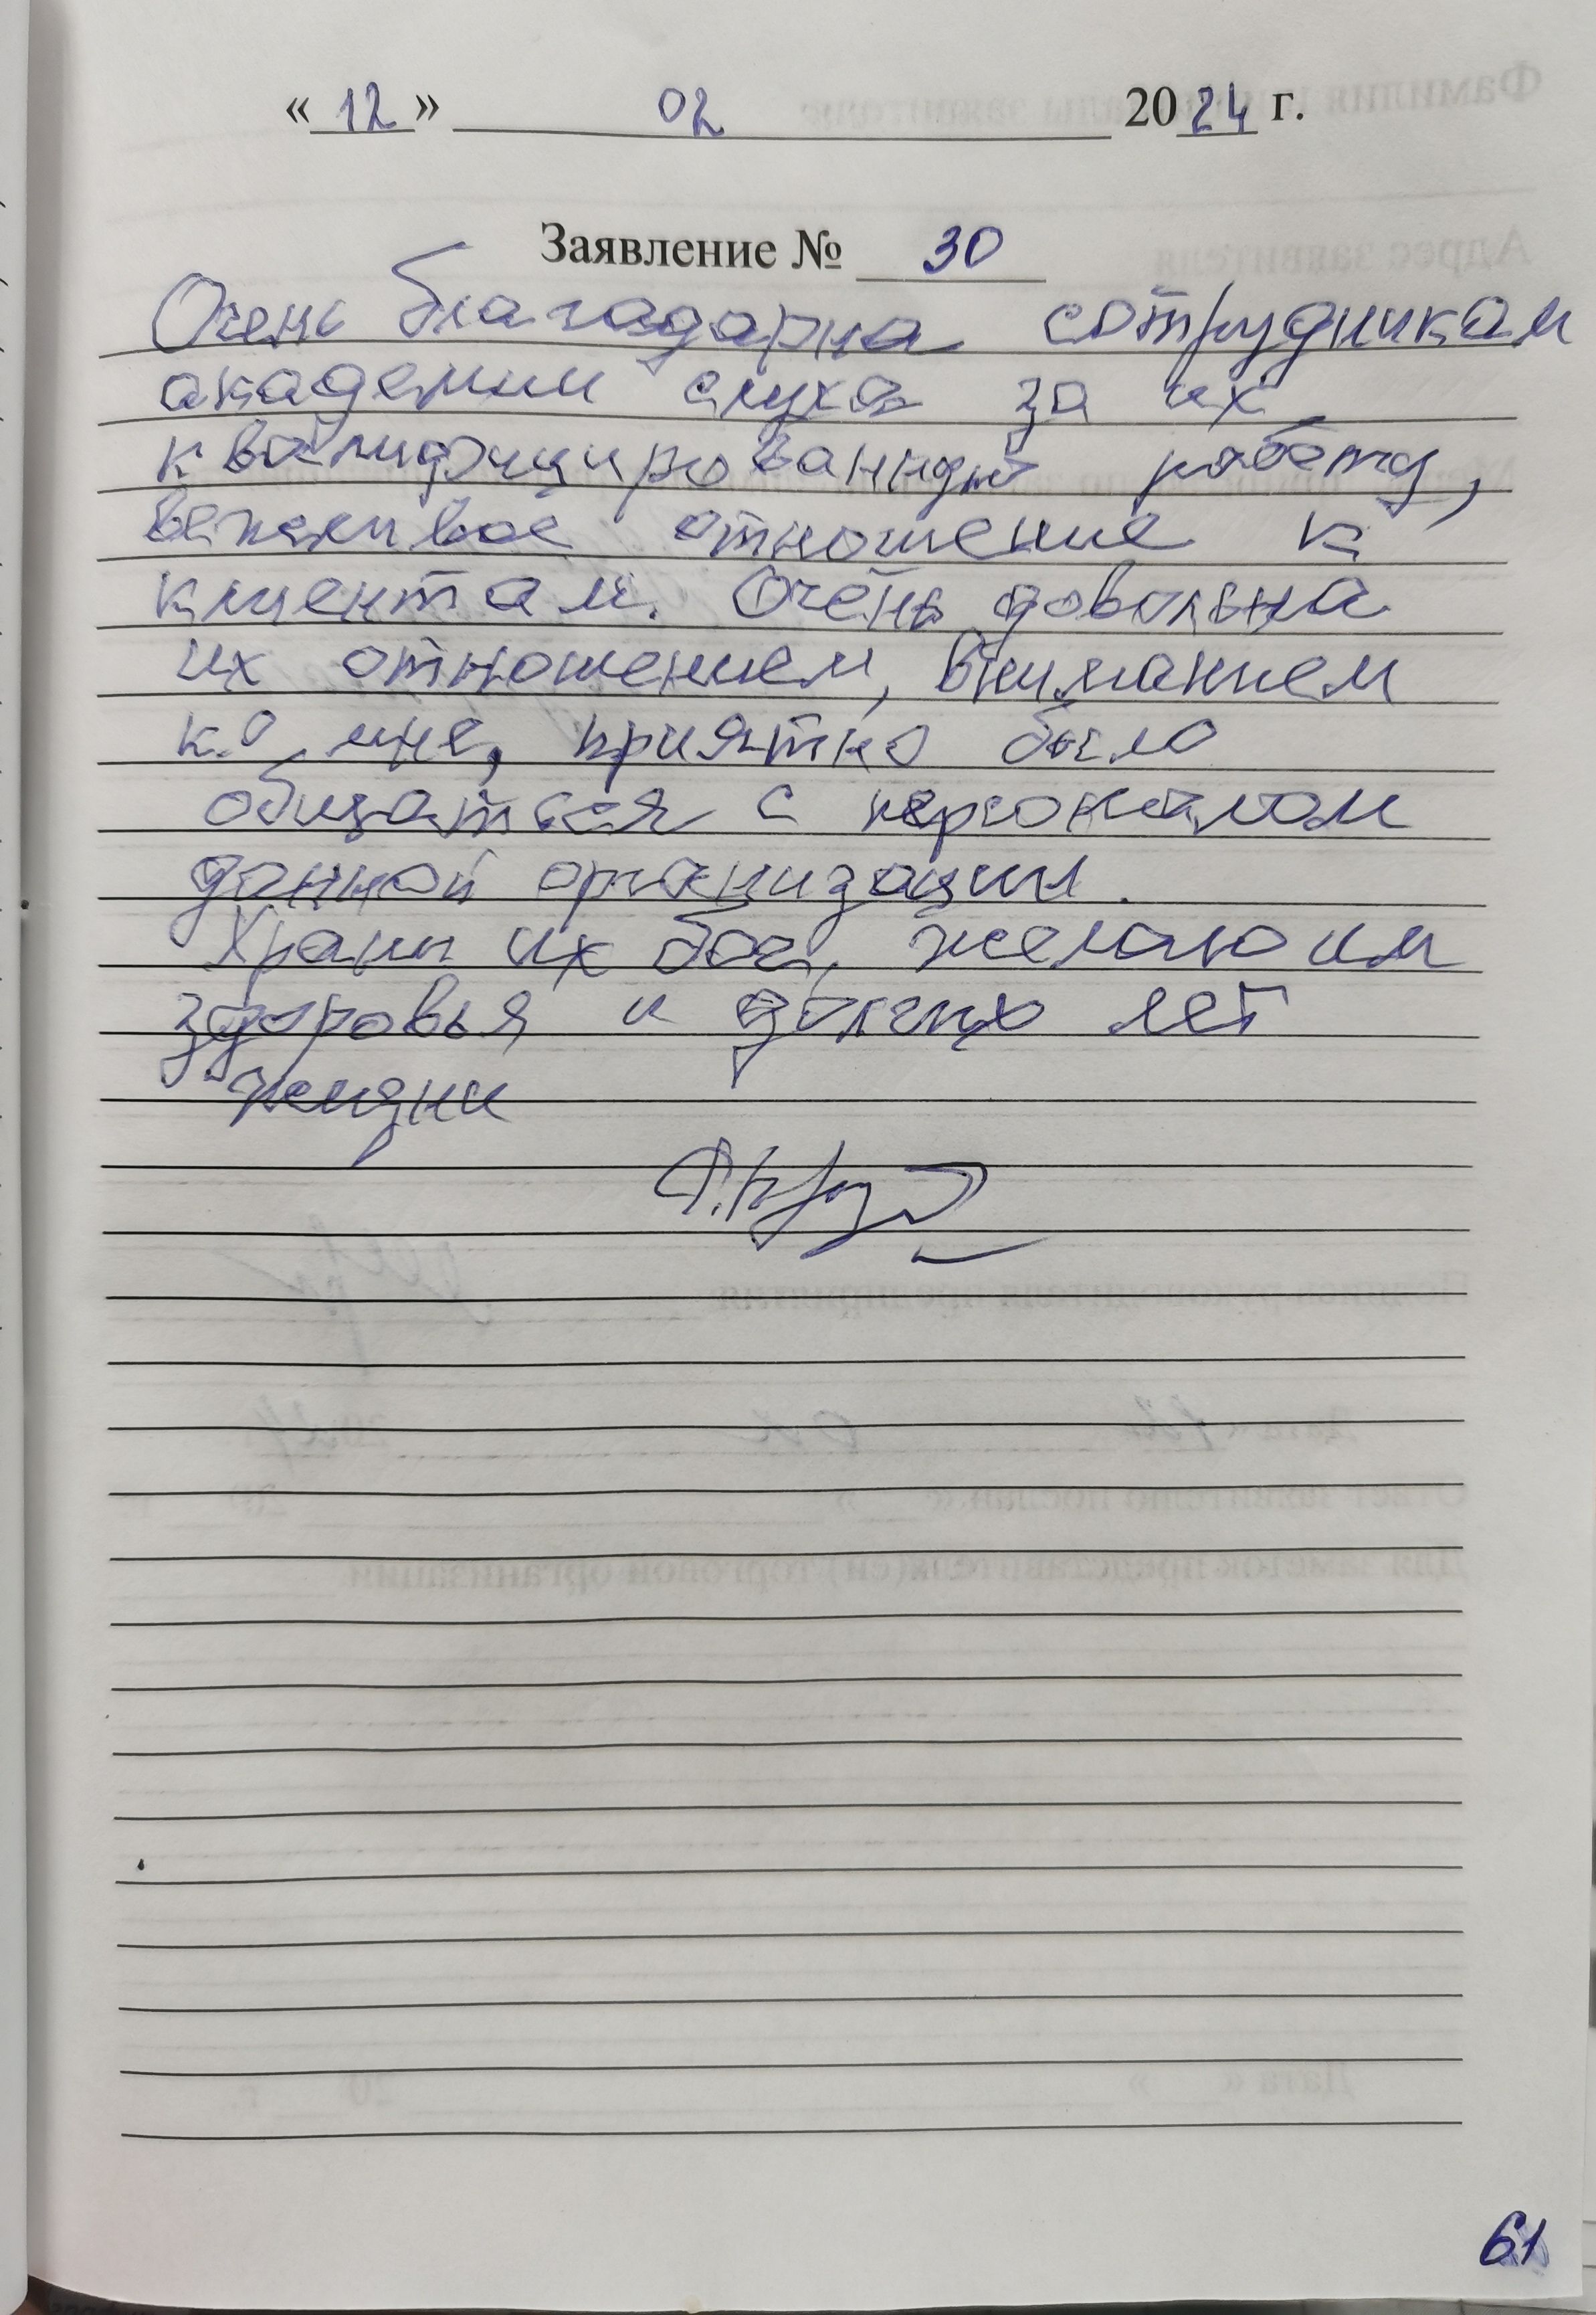 « 12 » 02 2024 г.
Заявление № 30
Очень благадарна сотрудникам
академии слуха за их
квалифицированную работу,
вежливое отношение к
клиентам. Очень довольна
их отношением, вниманием
ко мне, приятно было
общаться с персоналом
данной организации.
Храни их бог, желаю им
здоровья и долгих лет
жизни
61